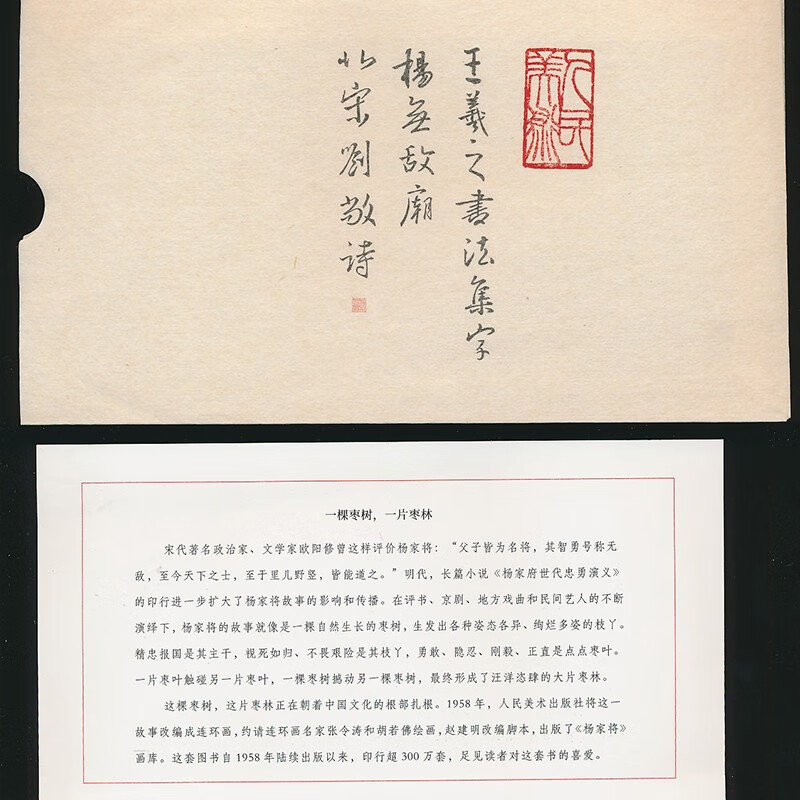 王羲之書法集字
楊無敵廟
北宋劉敞詩
一棵枣树，一片枣林
宋代著名政治家、文学家欧阳修曾这样评价杨家将：“父子皆为名将，其智勇号称无
敌，至今天下之士，至于里儿野竖，皆能道之。”明代，长篇小说《杨家府世代忠勇演义》
的印行进一步扩大了杨家将故事的影响和传播。在评书、京剧、地方戏曲和民间艺人的不断
演绎下，杨家将的故事就像是一棵自然生长的枣树，生发出各种姿态各异、绚烂多姿的枝丫。
精忠报国是其主干，视死如归、不畏艰险是其枝丫，勇敢、隐忍、刚毅、正直是点点枣叶。
一片枣叶触碰另一片枣叶，一棵枣树撼动另一棵枣树，最终形成了汪洋恣肆的大片枣林。
这棵枣树，这片枣林正在朝着中国文化的根部扎根。1958年，人民美术出版社将这一
故事改编成连环画，约请连环画名家张令涛和胡若佛绘画，赵建明改编脚本，出版了《杨家将》
画库。这套图书自1958年陆续出版以来，印行超300万套，足见读者对这套书的喜爱。